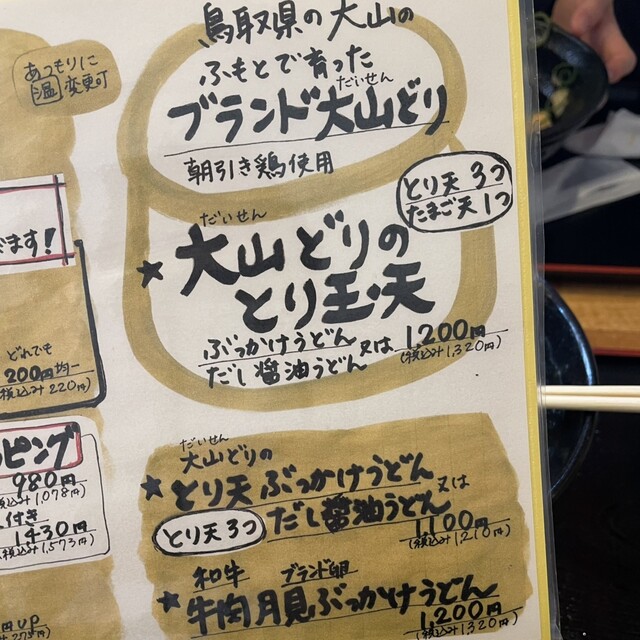 あつもりに
温 変更可
鳥取県の大山の
ふもとで育った
だいせん
ブランド大山どり
朝引き鶏使用
とり天 3つ
たまご天 1つ
きます!
だいせん
★大山どりの
とり玉天
ぶっかけうどん
又は
だし醤油うどん
1,200円
(税込み1,320円)
どれでも
200円均一
(税込み220円)
ッピング
980円
(税込み1,078円)
付き
1430円
(税込み1,573円)
円UP
だいせん
大山どりの
★とり天ぶっかけうどん
又は
とり天3つ
だし醤油うどん
1,100円
(税込み1,210円)
和牛 ブランド卵
★牛肉月見ぶっかけうどん
1,200円
(税込み1,320円)